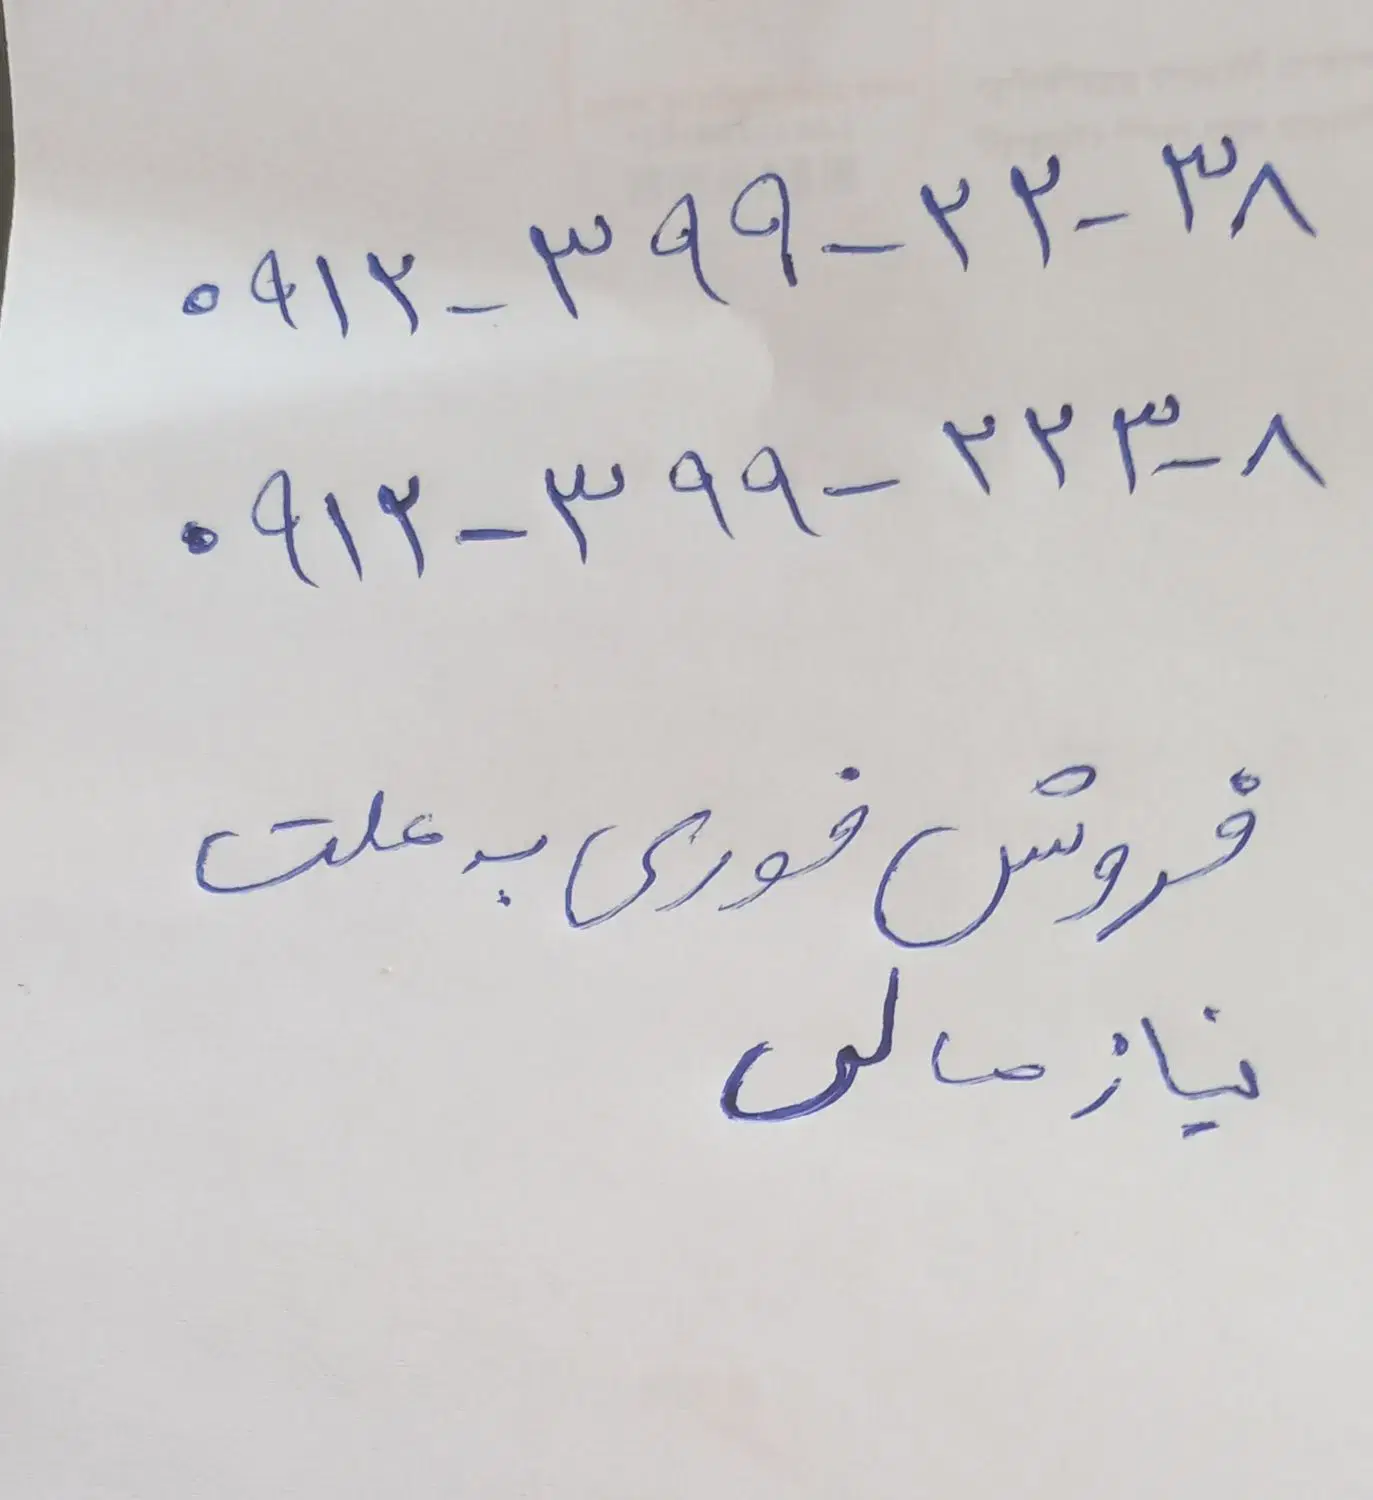 ۰۹۱۲-۳۹۹-۲۲-۳۸
۰۹۱۲-۳۹۹-۲۲۳-۸
فروش فوری به علت
نیاز مالی